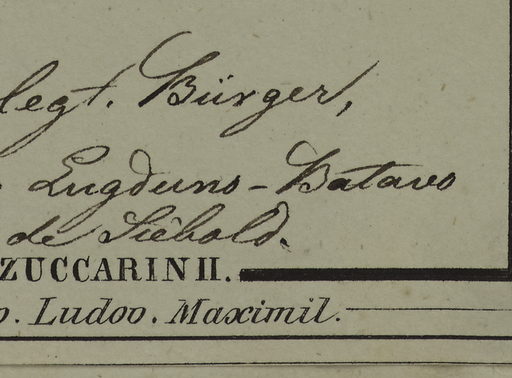 legt. Bürger,
Lugduno-Batavo
de Siebold.
ZUCCARINII.
. Ludov. Maximil.